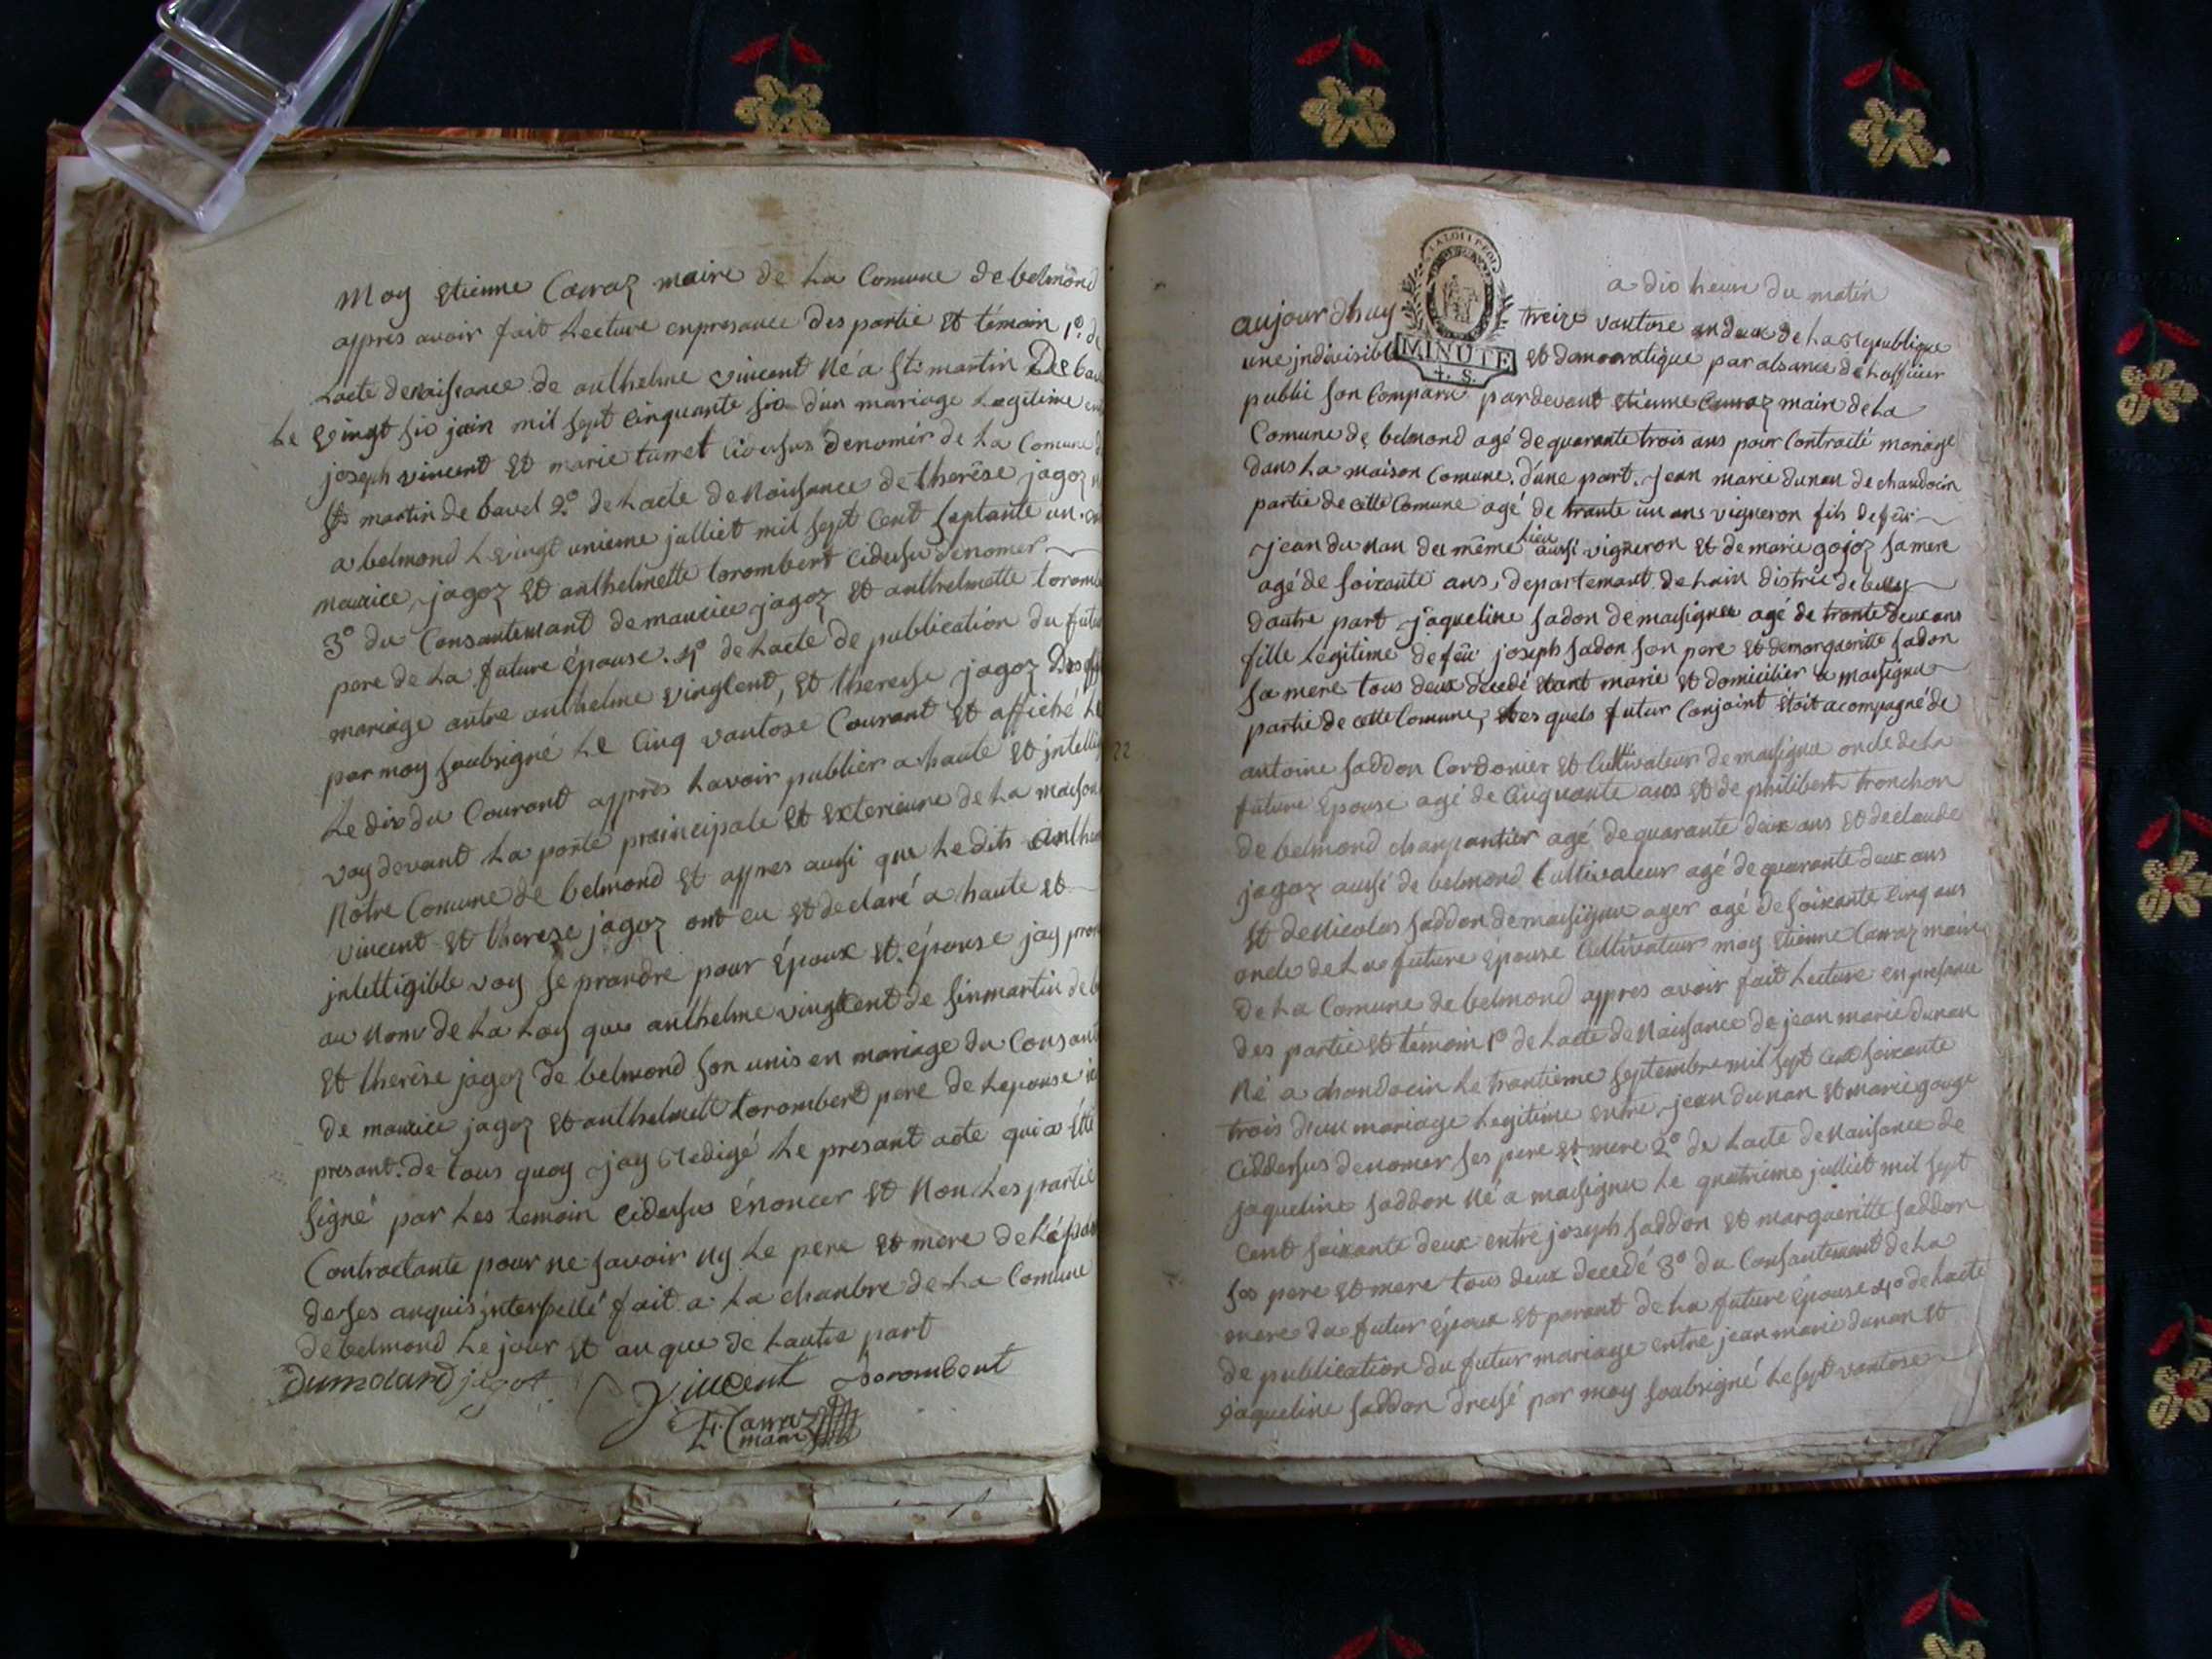 Moy Etienne Carraz maire de La Comune de belmond
appres avoir fait Lecture enpresance des partie Et témoin 1º. de
Lacte denaissance de anthelme vincent Né a St. martin De bav
Le vingt sio juin mil sept Cinquante sio d'un mariage Legitime
joseph vincent Et marie turret Cidessus denomér de La Comune
St. martin de bavel 2º. de Lacte de Naissance de therése jagoz
a belmond Le vingt unieme julliet mil sept Cent septante un.
maurice jagoz Et anthelmette Lorombert Cidessu denomer
3º du Consantemant de maurice jagoz Et anthelmette Loromb
pere de La future épouse. 4º de Lacte de publication du futu
mariage antre anthelme vinglent, Et theresse jagoz
par moy soubsigné Le Cinq vantose Courant Et affiché Le
Le dix du Courant apprés Lavoir publier a haute Et jntelli
voy devant La porte praincipale Et Exterieure de La maison
Notre Comune de belmond Et appres aussi que Ledits anthe
vincent Et therese jagoz ont eu Et declaré a haute Et
jntelligible voy se prandre pour Epoux Et épouse jay pron
au Nom de La Loy que anthelme vingtcent de sinmartin de b
Et therése jagoz de belmond son unis en mariage du Consant
de maurice jagoz Et anthelmette Lorombert pere de Lepouse
presant. de tous quoy jay Redigé Le presant acte qui a Etté
signé par Les temoin Cidessus Enoncer Et Non Les partie
Contractante pour ne savoir Ny Le pere Et mere de
deses anquis jnterpellé fait a La chanbre de La Comune
de belmond Le jour Et an que de Lautre part
Dumolard jagot Vincent Lorombert
E. Carraz
maire
22
LA LOI
MINUTE
a dio heure du matin
aujourdhuy treize vantose an deux de La Republique
une jndivisible Et democratique par absance de Lofficier
public son Comparu pardevant Etienne Carraz maire de La
Comune de belmond agé de quarante trois ans pour Contracté mariage
dans La maison Comune. d'une part. jean marie dunan de chandoin
partie de cette Comune agé de trante un ans vigneron fils de feu
jean dunan du même Lieu aussi vigneron Et de marie gojoz sa mere
agé de soixante ans, departemant de Lain distric de belley
dautre part jaqueline sadon de massignu agé de trante deux ans
fille Legitime de feu joseph sadon son pere Et de margueritte sadon
sa mere tous deux decedé Etant marié Et domicilier a massignu
partie de cette Comune, Les quels futur Conjoint étoit acompagné de
antoine saddon Cordonier Et Cultivateur de massignu oncle de La
future Epouse agé de Cinquante ans Et de philibert tronchon
de belmond charpantier agé de quarante deux ans Et de claude
jagoz aussi de belmond Cultivateur agé de quarante deux ans
Et de Nicolas saddon de massignu agé de soixante Cinq ans
oncle de La future Epouse Cultivateur moy Etienne Carraz maire
de La Comune de belmond appres avoir fait Lecture en presance
des partie Et témoin 1º de Lacte de Naissance de jean marie dunan
Né a chandoin Le trantieme septembre mil sept Cent soixante
trois d'un mariage Legitime entre jean dunan Et marie gouge
Ciddessus denomer ses pere Et mere 2º de Lacte de Naissance de
jaqueline saddon Né a massignu Le quatrieme julliet mil sept
Cent soixante deux entre joseph saddon Et margueritte saddon
ses pere Et mere tous deux decedé 3º du Consantemant de La
mere du futur Epoux Et parant de La future Epouse 4º de Lacte
de publication du futur mariage entre jean marie dunan Et
jaqueline saddon dressé par moy soubsigné Le sept vantose